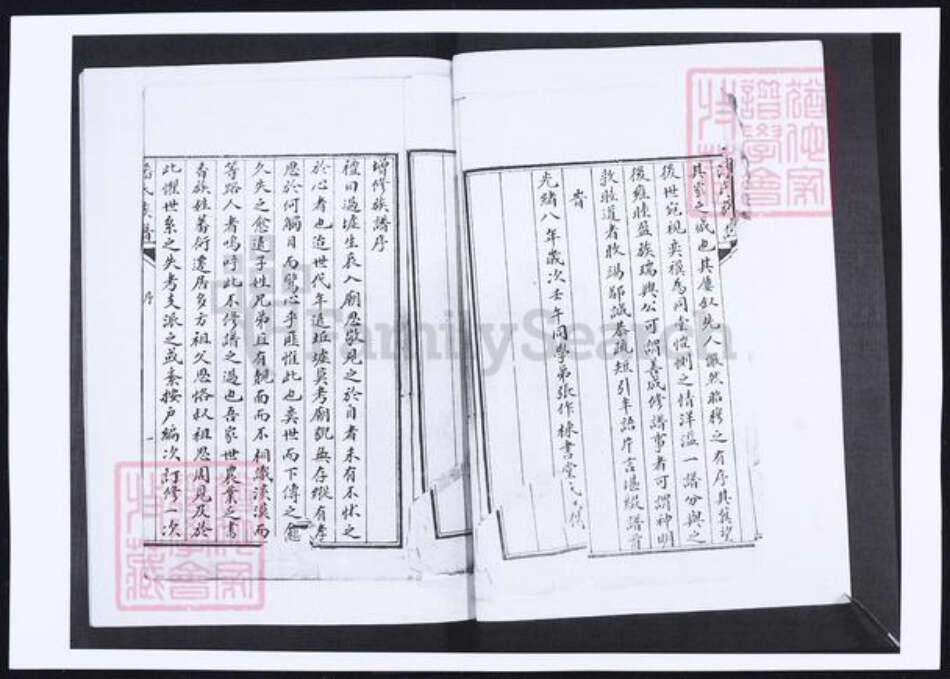 其家之盛也其廑叙先人儼然昭穆之有序其親
後世宛視奕禩為同堂惻之情洋溢一譜分與之
後雍睦盛族瑞與公可謂善成修譜事者可謂神明
敦睦道者牧鴻鄙誠恭疏短引半語片言堪綴譜首
旹
光緒八年歲次壬午同學弟張作棟書堂氏撰
增修族譜序
禮曰過墟生哀入廟思敬見之於目者未有不状之
於心者也迨世代年遠垣墟莫考廟貌無存縱有孝
思於何觸目而驚心乎匪惟此也奕世而下傳之愈
久失之愈遠子姓兄弟且有覿面而不相識漠漠而
等路人者嗚呼此不修譜之過也吾家世農業之書
香族姓蕃衍遷居多方祖父思恪叔祖思周見及於
此懼世系之失考支派之或紊按戶編次訂修一次
氏族譜
序
一
FamilySearch
譜學會
特藏